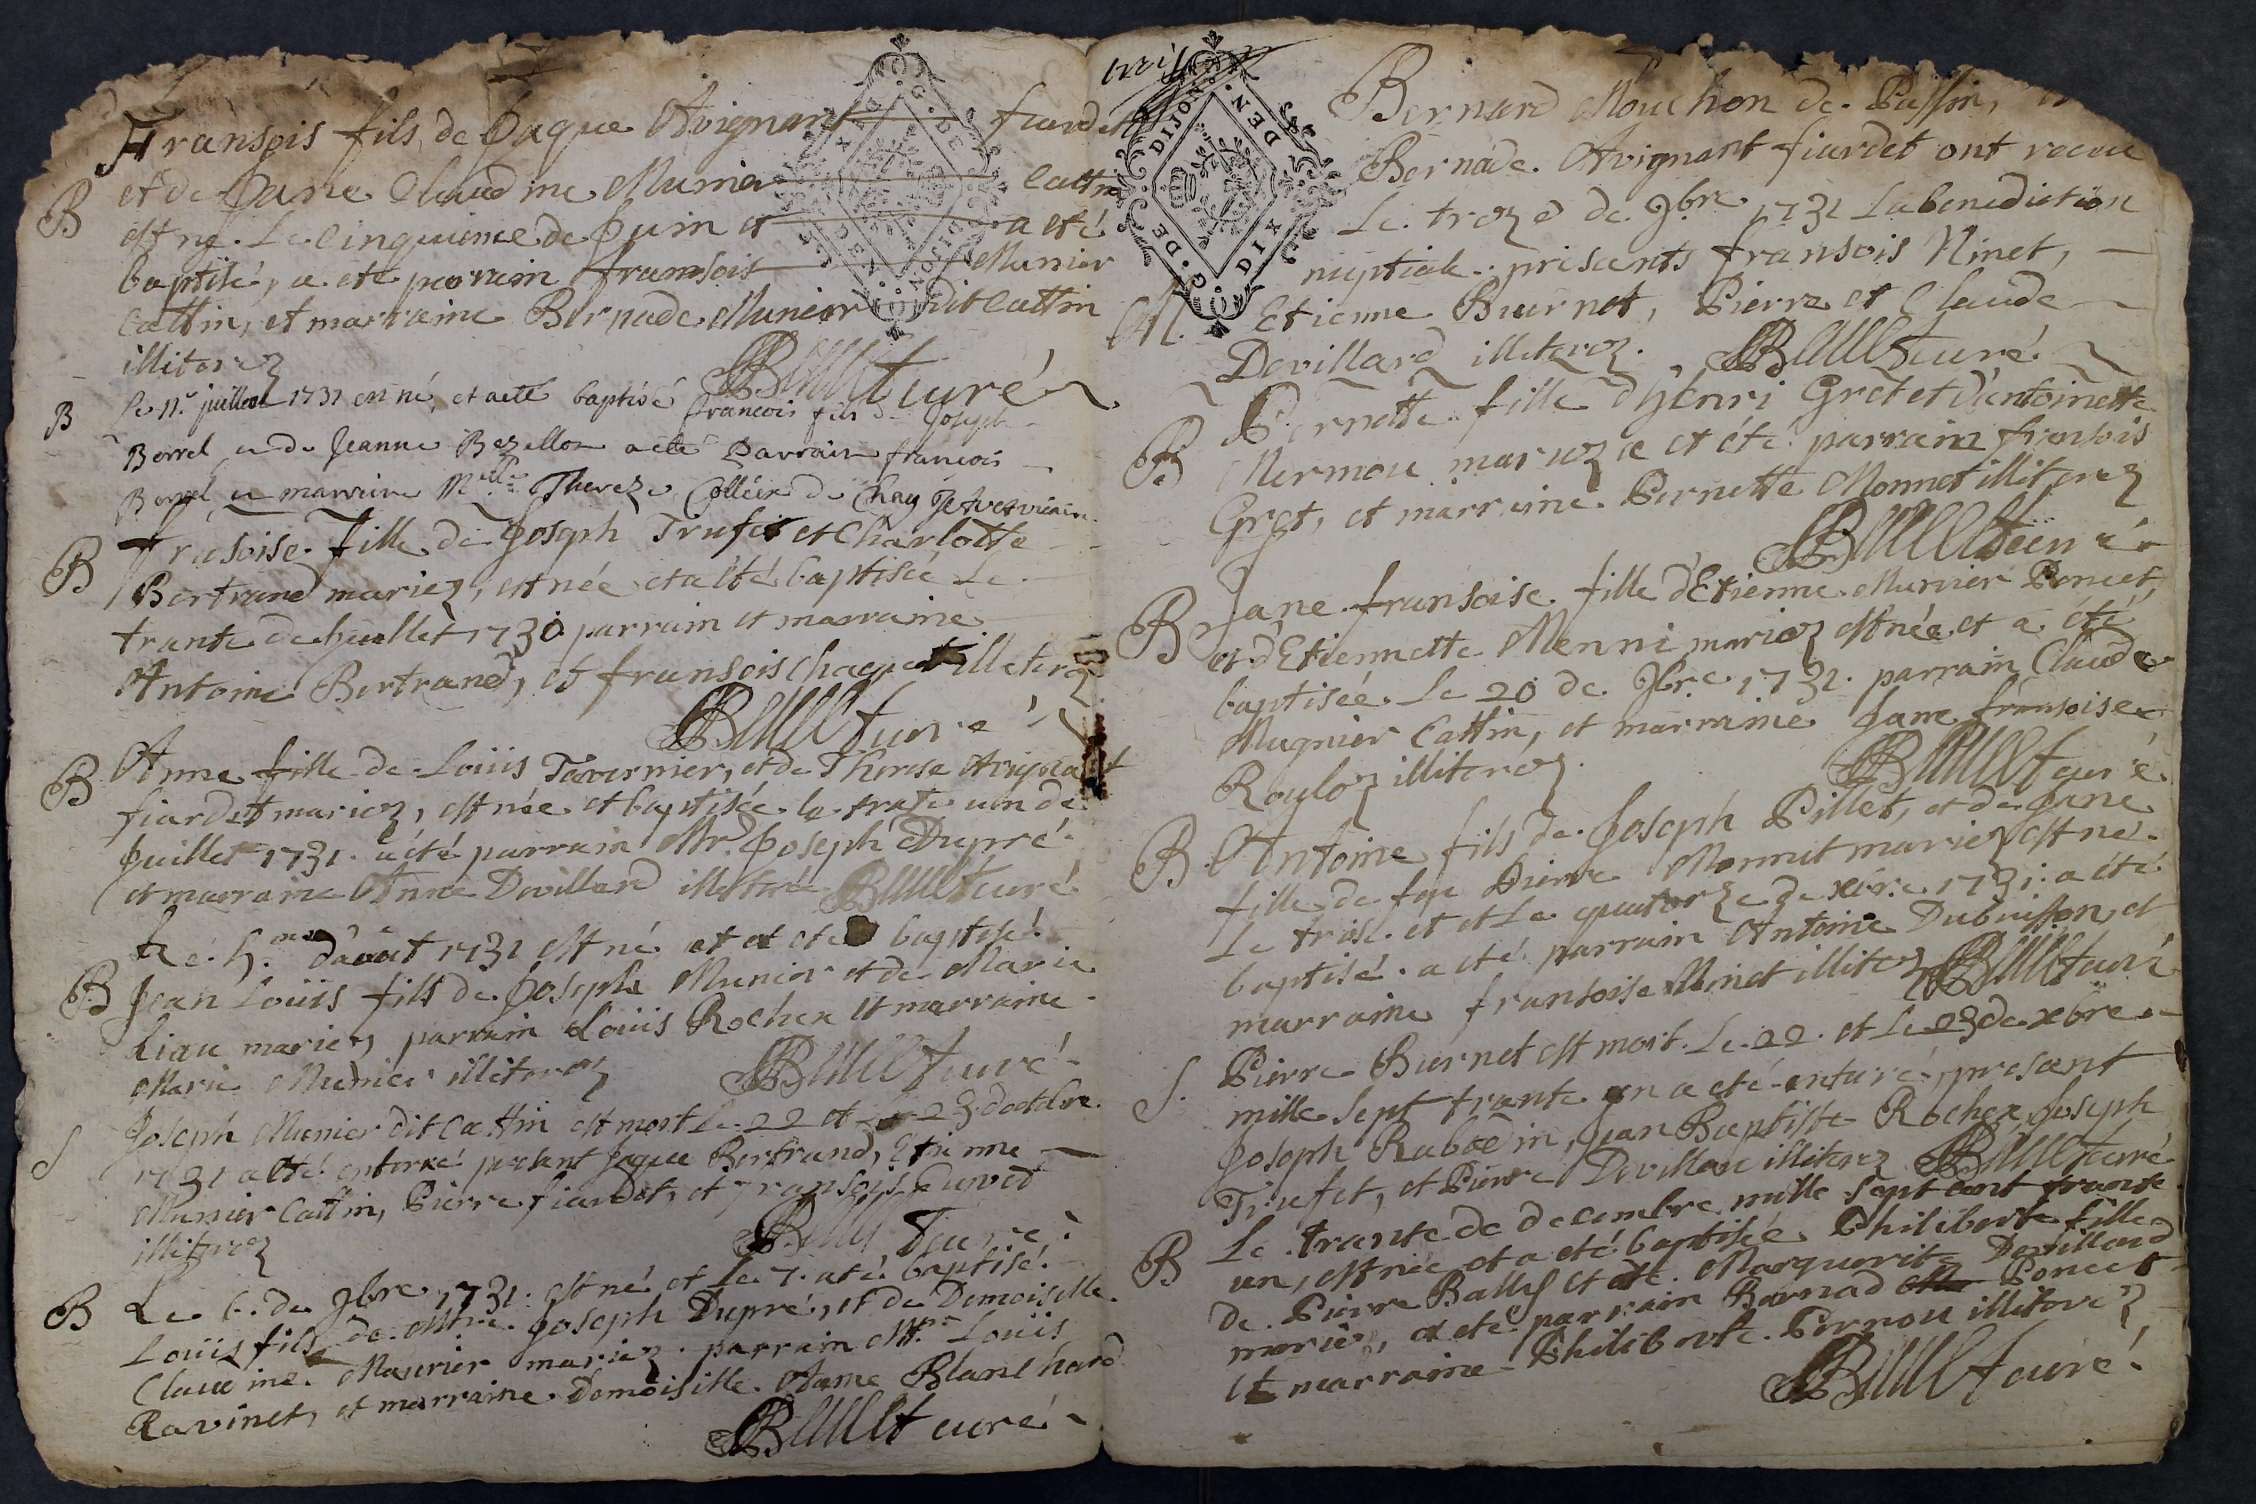 Fransois fils de Jaque Avignant fiardet
B et de Jane Claudine Munier Cattin
est né Le cinquieme de Juin et a eté
baptisé, a eté parrain fransois Munier
Cattin, et marraine Bernade Munier dit Cattin
illiterez
curé
B Le 11e juillet 1731 est né, et a eté baptisé francois fils de Joseph
Borrel et de Jeanne Bezellon a eté Parrain francois
Borrel et marraine Melle Thereze de Chay
B Frasoise fille de Joseph Trufet et Charlotte
Bertrand mariez, est née et a eté baptisée Le
trante de huillet 1730 parrain et marraine
Antoine Bertrand, et fransois chaquet illeterez
curé
B Anne fille de Loüis Tavernier, et de Therese Avignant
fiardet mariez, est née et baptisée le trate un de
Juillet 1731. a eté parrain Mr. Joseph Dupré
et marraine Anne Devillard illiterée curé
Le 5.me d'août 1731 est né et a eté baptisé
B Jean Loüis fils de Joseph Munier et de Marie
Liau mariez parrain Loüis Rochex et marraine
Marie Munier illiterez curé
S Joseph Munier dit Cattin est mort Le 22 et 23 d'octobre
1731 a eté enterré present Jaque Bertrand, Etienne
Munier Cattin, Pierre fiardet, et fransois
illiterez curé
B Le 6. de 9bre 1731 est né et Le 7. a eté baptisé
Loüis fils de Mtre Joseph Dupré, et de Demoiselle
Claudine Maurier mariez. parrain Mr. Loüis
Ravinet, et marraine Demoiselle Anne Blanchard
curé
Bernard Mouchon de Passin,
Bernade Avignant fiardet ont recue
Le treze de 9bre 1731 La benediction
nuptiale presents fransois Ninet,
M. Etienne Burnet, Pierre et Claude
Devillard illiterez. curé
Pernette fille d'henri Gret et d'antoinette
B Mermou mariez a et été parrain fransois
Gret, et marraine Pernette Monnet illiterez
curé
B Jane fransoise fille d'Etienne Munier Poncet,
et d'Etiennette Menni mariez est née et a été
baptisée Le 20 de 9bre 1731. parrain Claude
Mugnier Cattin, et marraine Jane fransoise
Rouloz illiterez. curé
B Antoine fils de Joseph Pillet, et de Jane
fille de feu Pierre Monnet mariez est né
Le trese et et Le quatorze de xbre 1731. a eté
baptisé. a eté parrain Antoine Dubuisson et
marraine fransoise Ninet illiterez curé
S. Pierre Burnet est mort Le 22. et Le 23 de xbre
mille sept trante un a eté enturé, presant
Joseph Raboëin, Jan Baptiste Rochex, Joseph
Trufet, et Pierre Devillau illiterez curé
Le trante de decembre mille sept cent trante
B un, est née et a eté baptisée Philiberte fille
de Pierre Ballif et de Marguerite Devillard
mariés, a eté parrain Barnad Poncet
et marraine Philiberte Pernou illiterez
curé
G. DE DIJON
DIX DEN